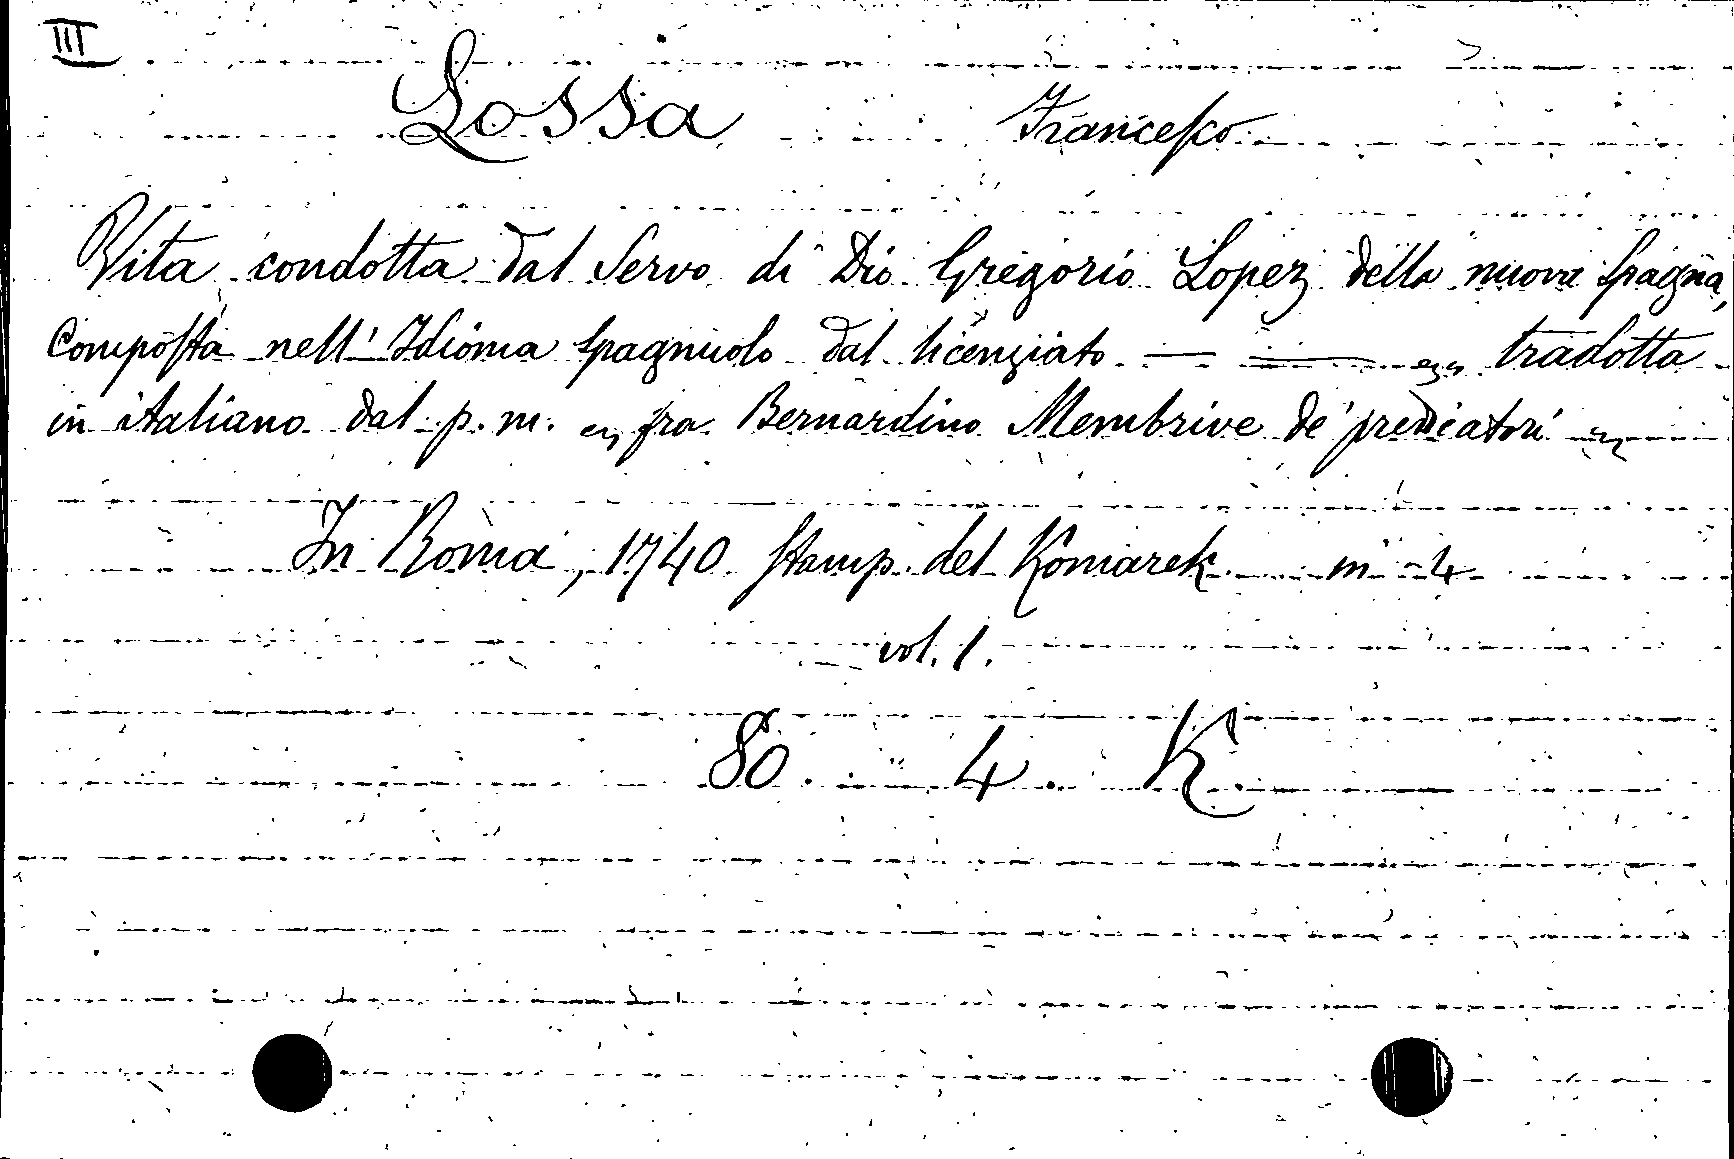 III
Lossa Francesco
Vita condotta dal Servo di Dio Gregorio Lopez della nuova Spagna,
Composta nell' Idioma Spagnuolo dal licenziato — — tradotta
in italiano dal p. m. fra Bernardino Membrive de' predicatori
In Roma, 1740 Stamp. del Komarek in 4
vol. 1.
80. 4. K.